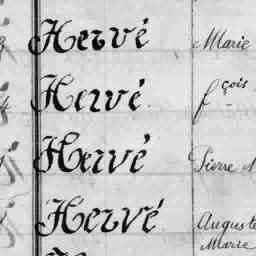 Hervé Marie
Hervé fçois
Hervé Pierre M
Hervé Auguste
Marie